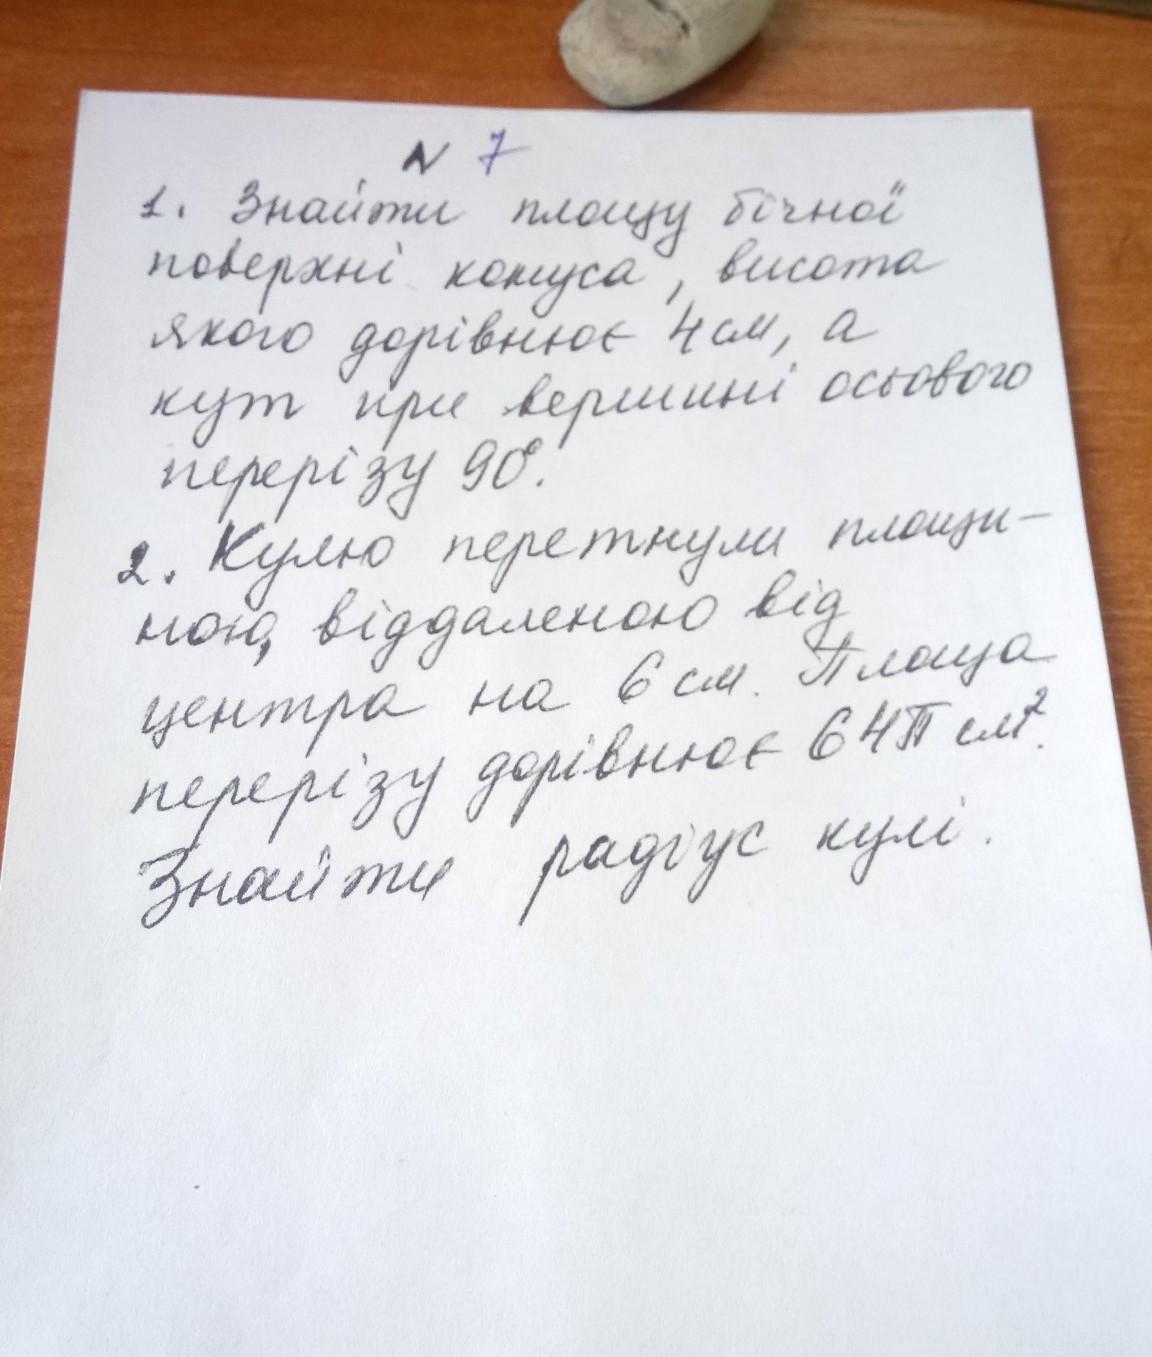 N 7
1. Знайти площу бічної
поверхні конуса, висота
якого дорівнює 4 см, а
кут при вершині осьового
перерізу 90°.
2. Кулю перетнули площи-
ною, віддаленою від
центра на 6 см. Площа
перерізу дорівнює 64π см².
Знайти радіус кулі.